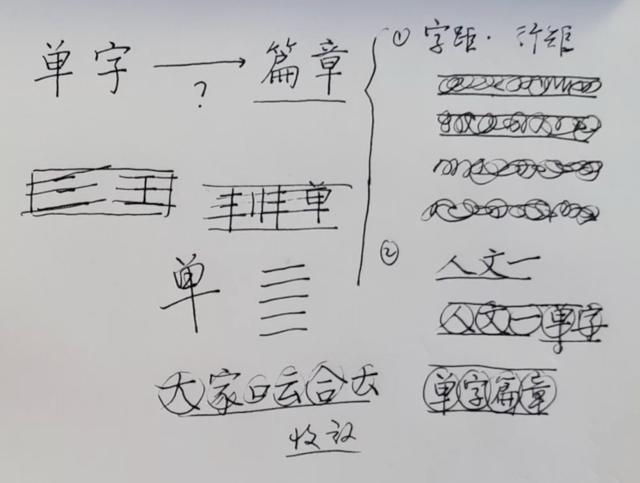 单字 ? 篇章
① 字距·行距
单
单
② 人文一
人文一单字
单字篇章
大家口云合大
收放